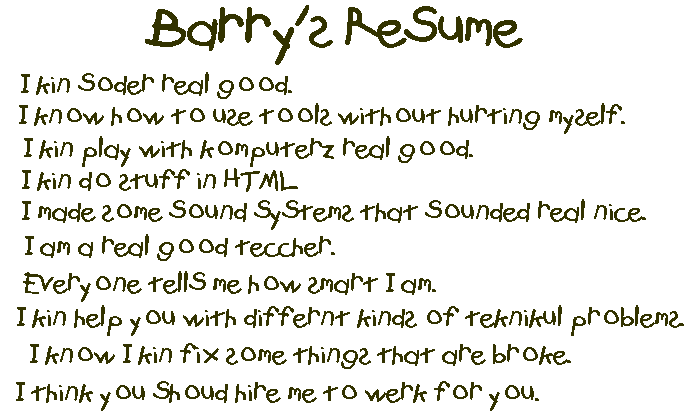 Barry's ReSume
I kin Soder real good.
I know how to use tools without hurting myself.
I kin play with komputerz real good.
I kin do stuff in HTML
I made some Sound SyStems that Sounded real nice.
I am a real good teccher.
Every one tellS me how smart I am.
I kin help you with differnt kinds of teknikul problems.
I know I kin fix some things that are broke.
I think you Shoud hire me to werk for you.